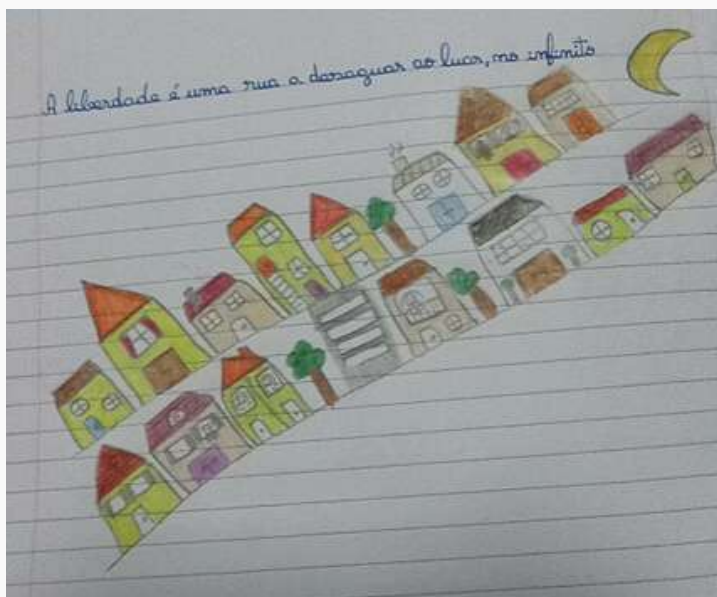 A liberdade é uma rua a desaguar ao luar, no infinito